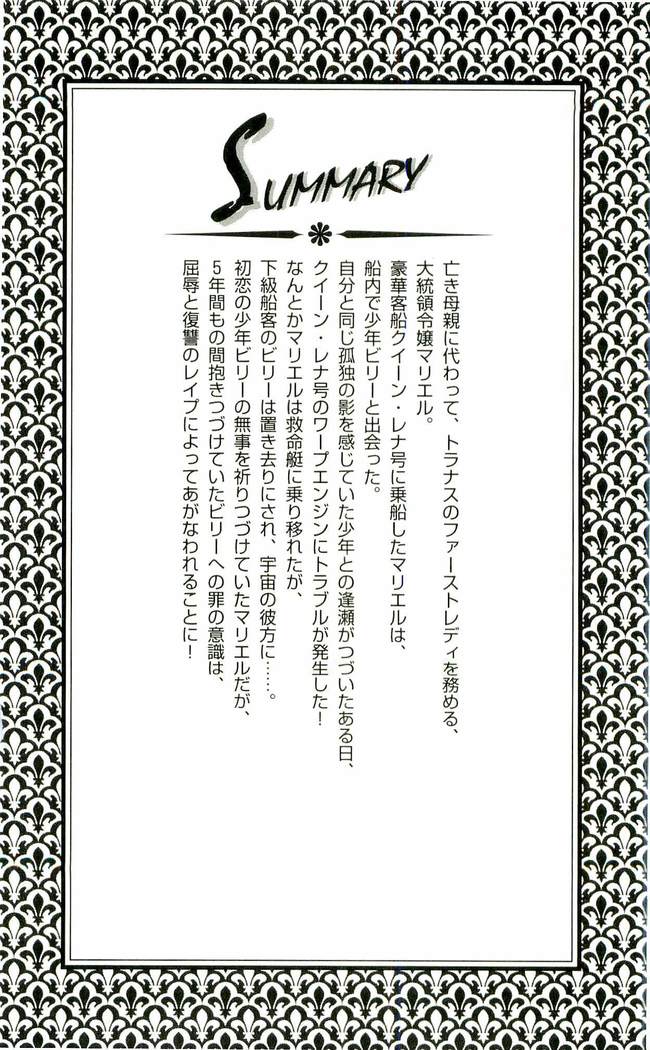 SUMMARY
亡き母親に代わって、トラナスのファーストレディを務める、
大統領令嬢マリエル。
豪華客船クイーン・レナ号に乗船したマリエルは、
船内で少年ビリーと出会った。
自分と同じ孤独の影を感じていた少年との逢瀬がつづいたある日、
クイーン・レナ号のワープエンジンにトラブルが発生した！
なんとかマリエルは救命艇に乗り移れたが、
下級船客のビリーは置き去りにされ、宇宙の彼方に……。
初恋の少年ビリーの無事を祈りつづけていたマリエルだが、
5年間もの間抱きつづけていたビリーへの罪の意識は、
屈辱と復讐のレイプによってあがなわれることに！